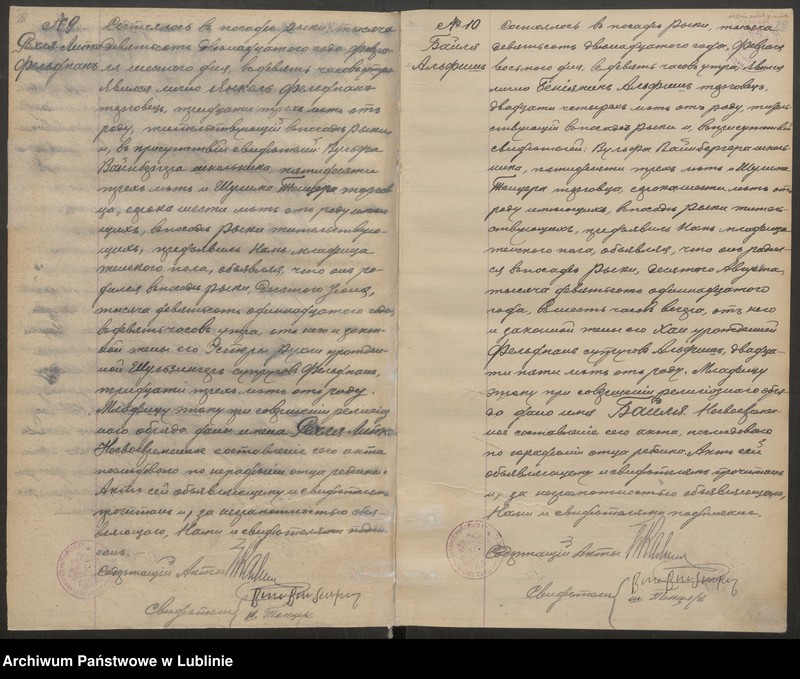 № 9
Рохля Лита
Фельдпанъ
Состоялось въ посадѣ Рыки, тысяча
девятьсотъ двѣнадцатого года, Февра-
ля шестого дня, въ девять часовъ утра.
Явился лично Янкель Фельдпанъ
торговецъ, тридцати трехъ лѣтъ отъ
роду, жительствующій въ посадѣ Рыки
и, въ присутствіи свидѣтелей: Вульфа
Вайнбергера школьника, пятидесяти
трехъ лѣтъ и Шушка Тенцера торгов-
ца, сорока шести лѣтъ отъ роду имѣю-
щихъ, въ посадѣ Рыки жительствую-
щихъ, предъявилъ Намъ младенца
женскаго пола, объявляя, что оно ро-
дился въ посадѣ Рыки, Десятого
тысяча девятьсотъ одиннадцатого года
въ девять часовъ утра, отъ него и закон-
ной жены его Эстеры Рухли урожден-
ной супруговъ Фельдпанъ,
тридцати трехъ лѣтъ отъ роду.
Младенцу этому при совершеніи религіоз-
наго обряда дано имена Рохля Лита.
Несвоевременное составленіе сего акта
послѣдовало по нерадѣнію отца ребенка.
Актъ сей объявляющему и свидѣтелямъ
прочитанъ и, за неграмотностью объя-
вляющаго, Нами и свидѣтелями подпи-
санъ.
Содержащій Акты
Свидѣтели
Ш. Тенцеръ
№ 10
Байля
Альфишъ
Состоялось въ посадѣ Рыки, тысяча
девятьсотъ двѣнадцатого года, Февраля
восьмого дня, въ девять часовъ утра. Явился
лично Беніяминъ Альфишъ торговецъ,
двадцати четырехъ лѣтъ отъ роду, житель-
ствующій въ посадѣ Рыки и, въ присутствіи
свидѣтелей: Вульфа Вайнбергера школь-
ника, пятидесяти трехъ лѣтъ и Шушка
Тенцера торговца, сорока шести лѣтъ отъ
роду имѣющихъ, въ посадѣ Рыки житель-
ствующихъ, предъявилъ Намъ младенца
женскаго пола, объявляя, что оно родил-
ся въ посадѣ Рыки, десятого Августа,
тысяча девятьсотъ одиннадцатого
года, въ шесть часовъ вечера, отъ него
и законной жены его Хаи урожденной
Фельдпанъ супруговъ Альфишъ, двадца-
ти пяти лѣтъ отъ роду. Младенцу
этому при совершеніи религіознаго обря-
да дано имя Байля. Несвоевремен-
ное составленіе сего акта, послѣдовало
по нерадѣнію отца ребенка. Актъ сей
объявляющему и свидѣтелямъ прочитанъ
и, за неграмотностью объявляющаго,
Нами и свидѣтелями подписанъ.
Содержащій Акты
Свидѣтели
Ш. Тенцеръ
Archiwum Państwowe w Lublinie